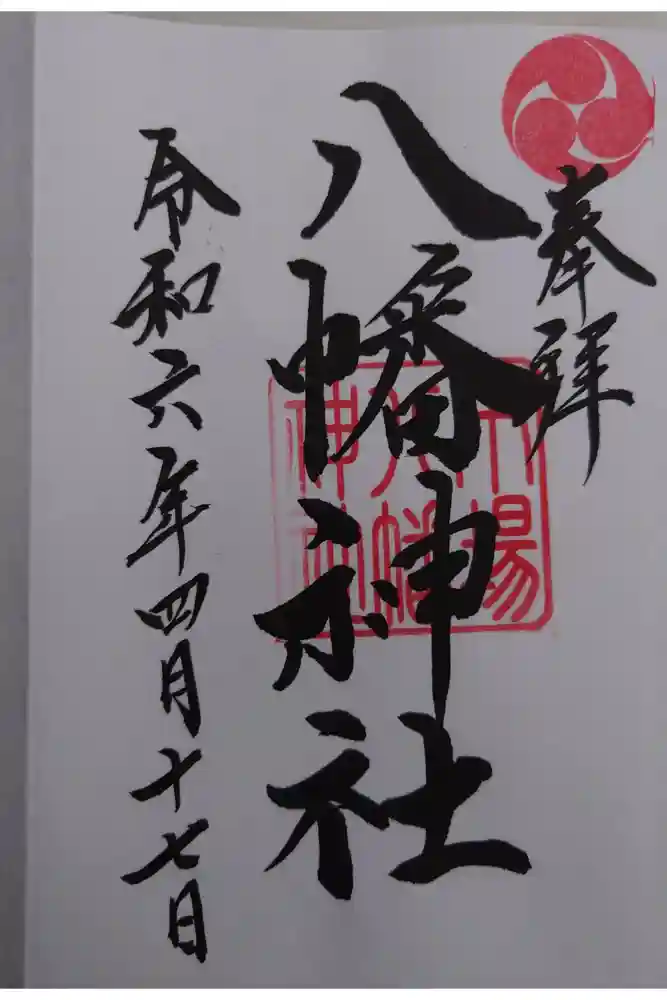 奉拝
八幡神社
令和六年四月十七日
八幡
神社